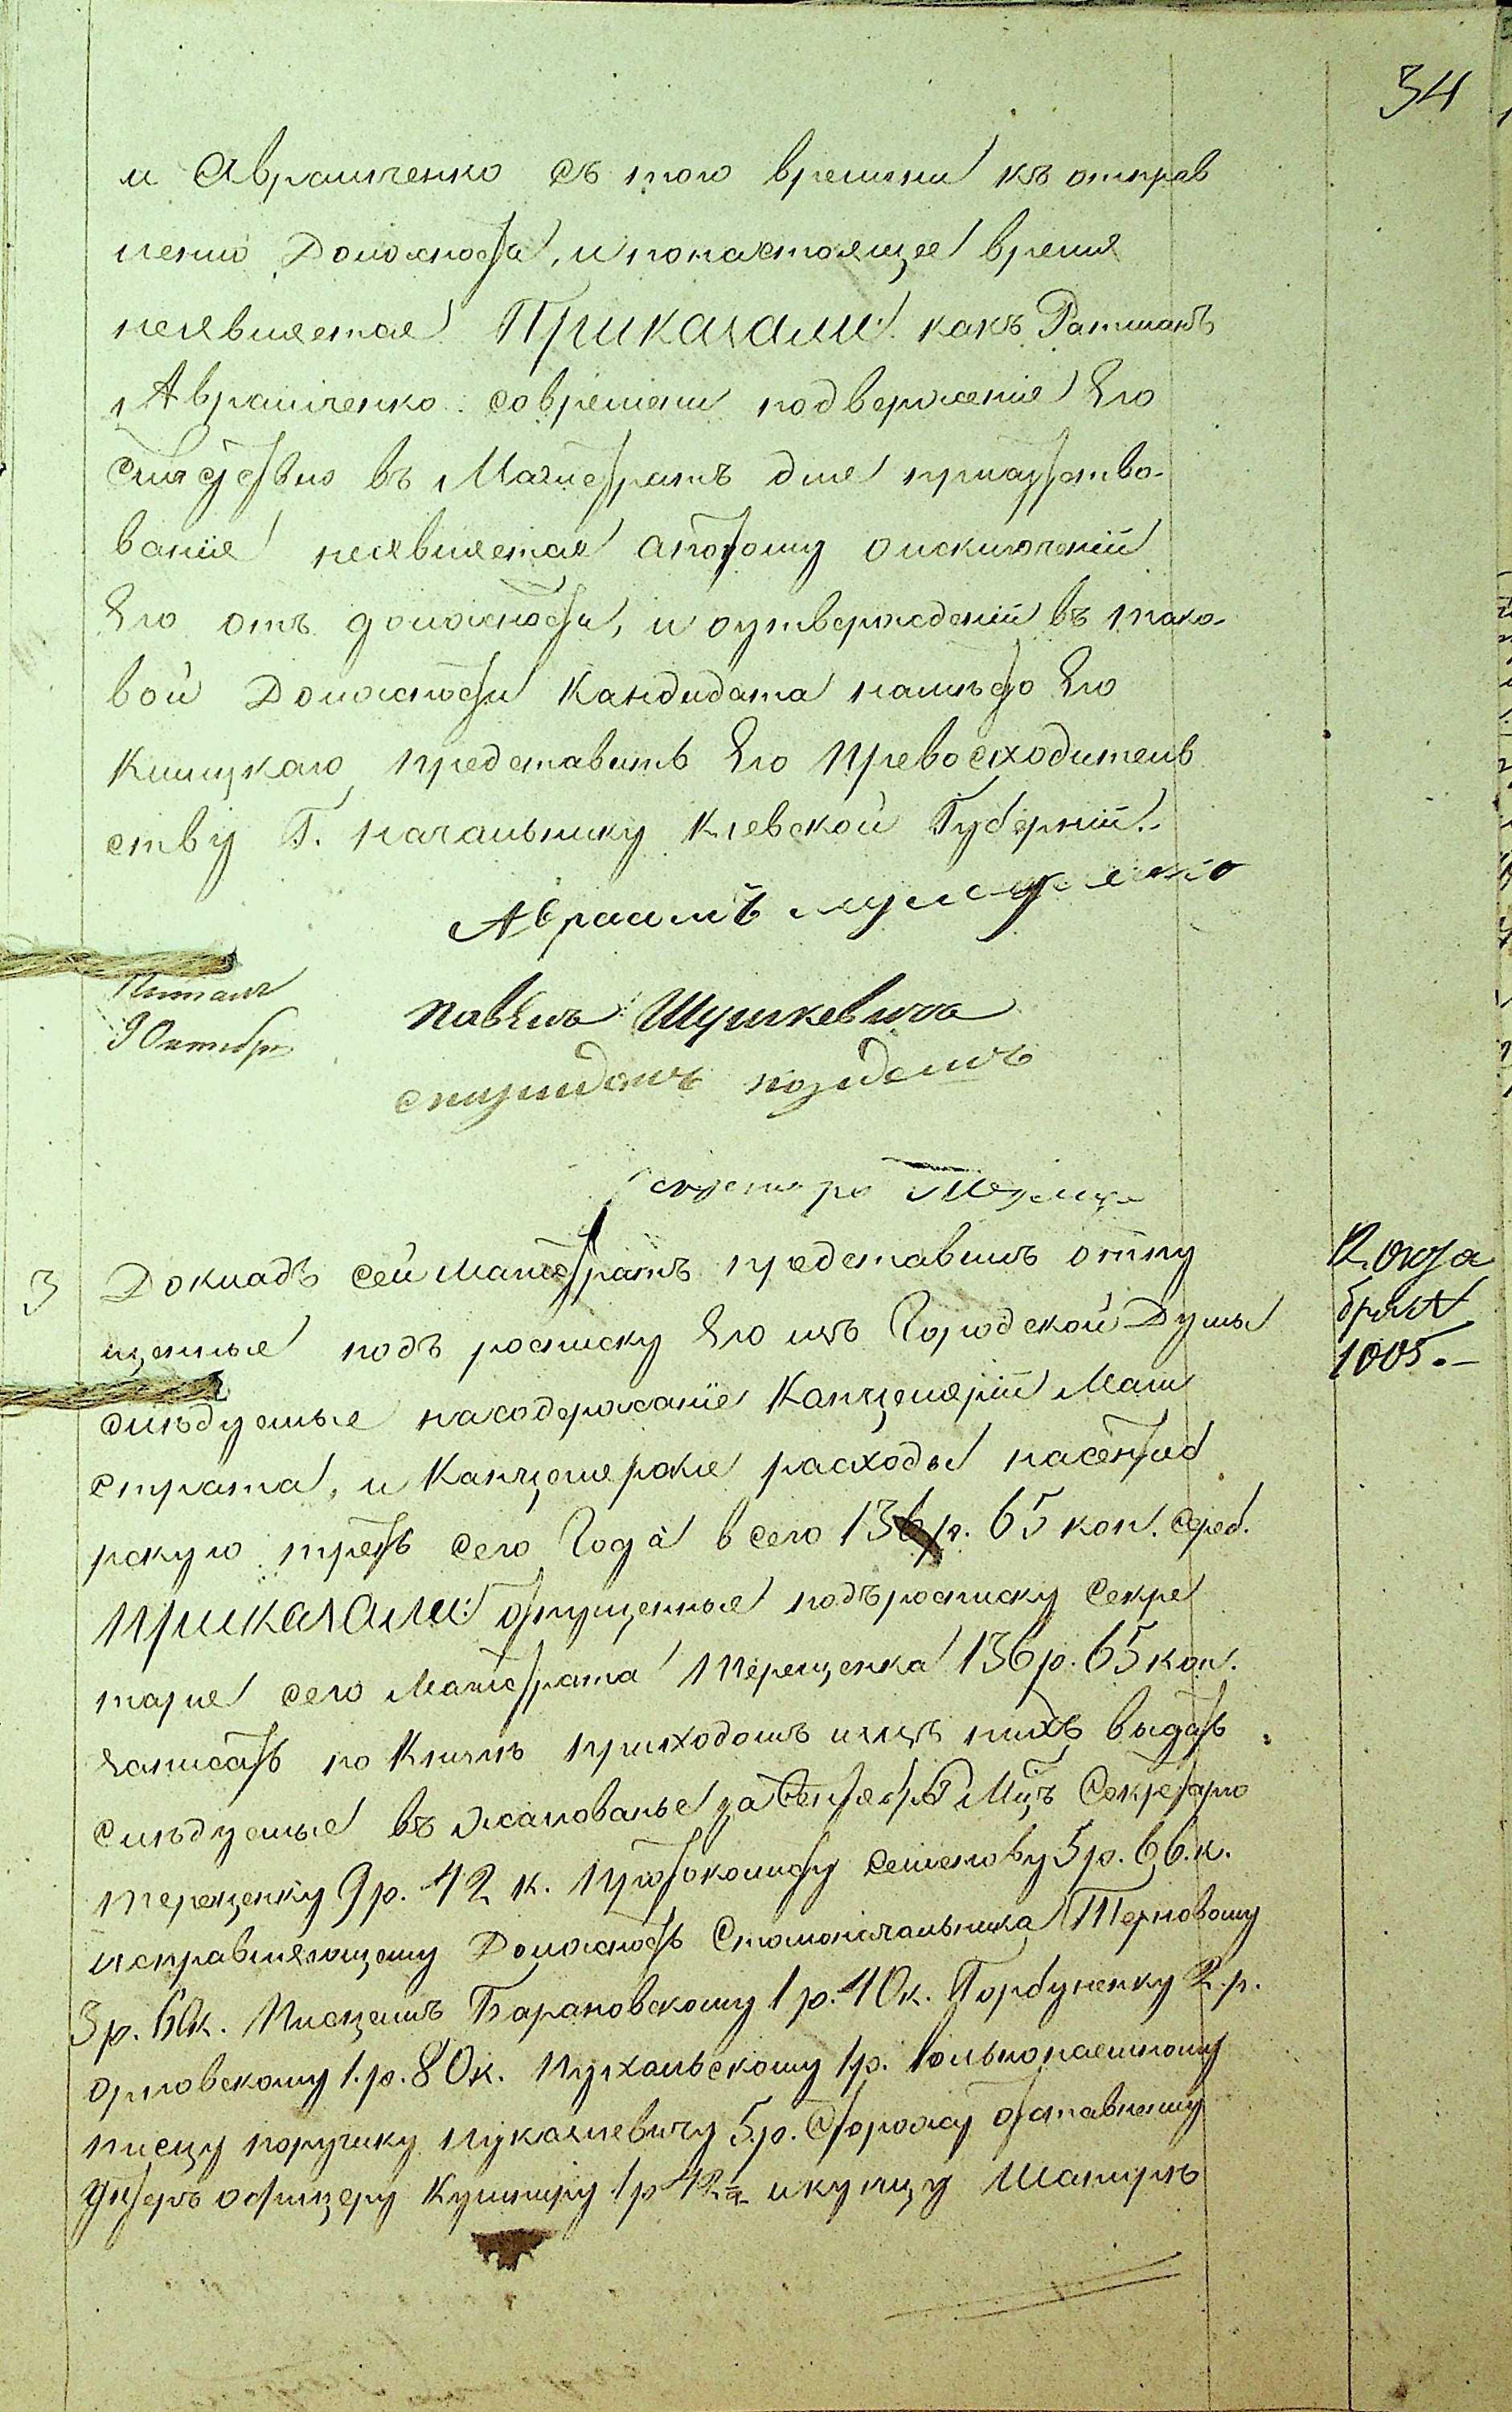 34
и Авраменко съ того времени къ отправ
лению Должности, и понастоящее время
неявляется Приказали: какъ Ратманъ
Авраменко современи подвержение Его
следствию въ Магистратъ для присутство-
вание неявляется апотому оисключений
Его отъ должности, и оутверждений въ тако-
вой Должности Кандидата наместо Его
представить Его Превосходитель
ству Г. начальнику Киевской Губерний.
Авраамъ
Читалъ
9 Октября
Павелъ Шушкевичъ
спиридонъ
Секретарь
3
Докладъ сей Магистратъ представилъ отпу
щенные подъ росписку Его изъ Городской Думы
следуемые насодержание Канцелярий Маги
страта, и Канцелярские расходы насентяб
рскую треть сего Года всего 136 р. 65 коп. сереб.
12. октя
бря №
1005.-
приказали: отпущенные подъросписку Секре
таря сего Магистрата Терещенка 136 р. 65 коп.
записать по Книгъ приходомъ изъ нихъ выдать
следуемые въ жалованье за Сентябрь Мцъ Секретарю
Терещенку 9 р. 42 к. Протоколисту Семенову 5 р. 66. к.
исправляющему Должность Столоначальника Терновому
3 р. 60к. Писцамъ Барановскому 1 р. 40к. Горбуненку 2. р.
орловскому 1. р. 80к. Пухальскому 1р. вольнонаемному
писцу поручику Лукашевичу 5. р. Сторожу отставному
унтеръ офицеру Кушниру 1 р 42 икупцу Шапиръ